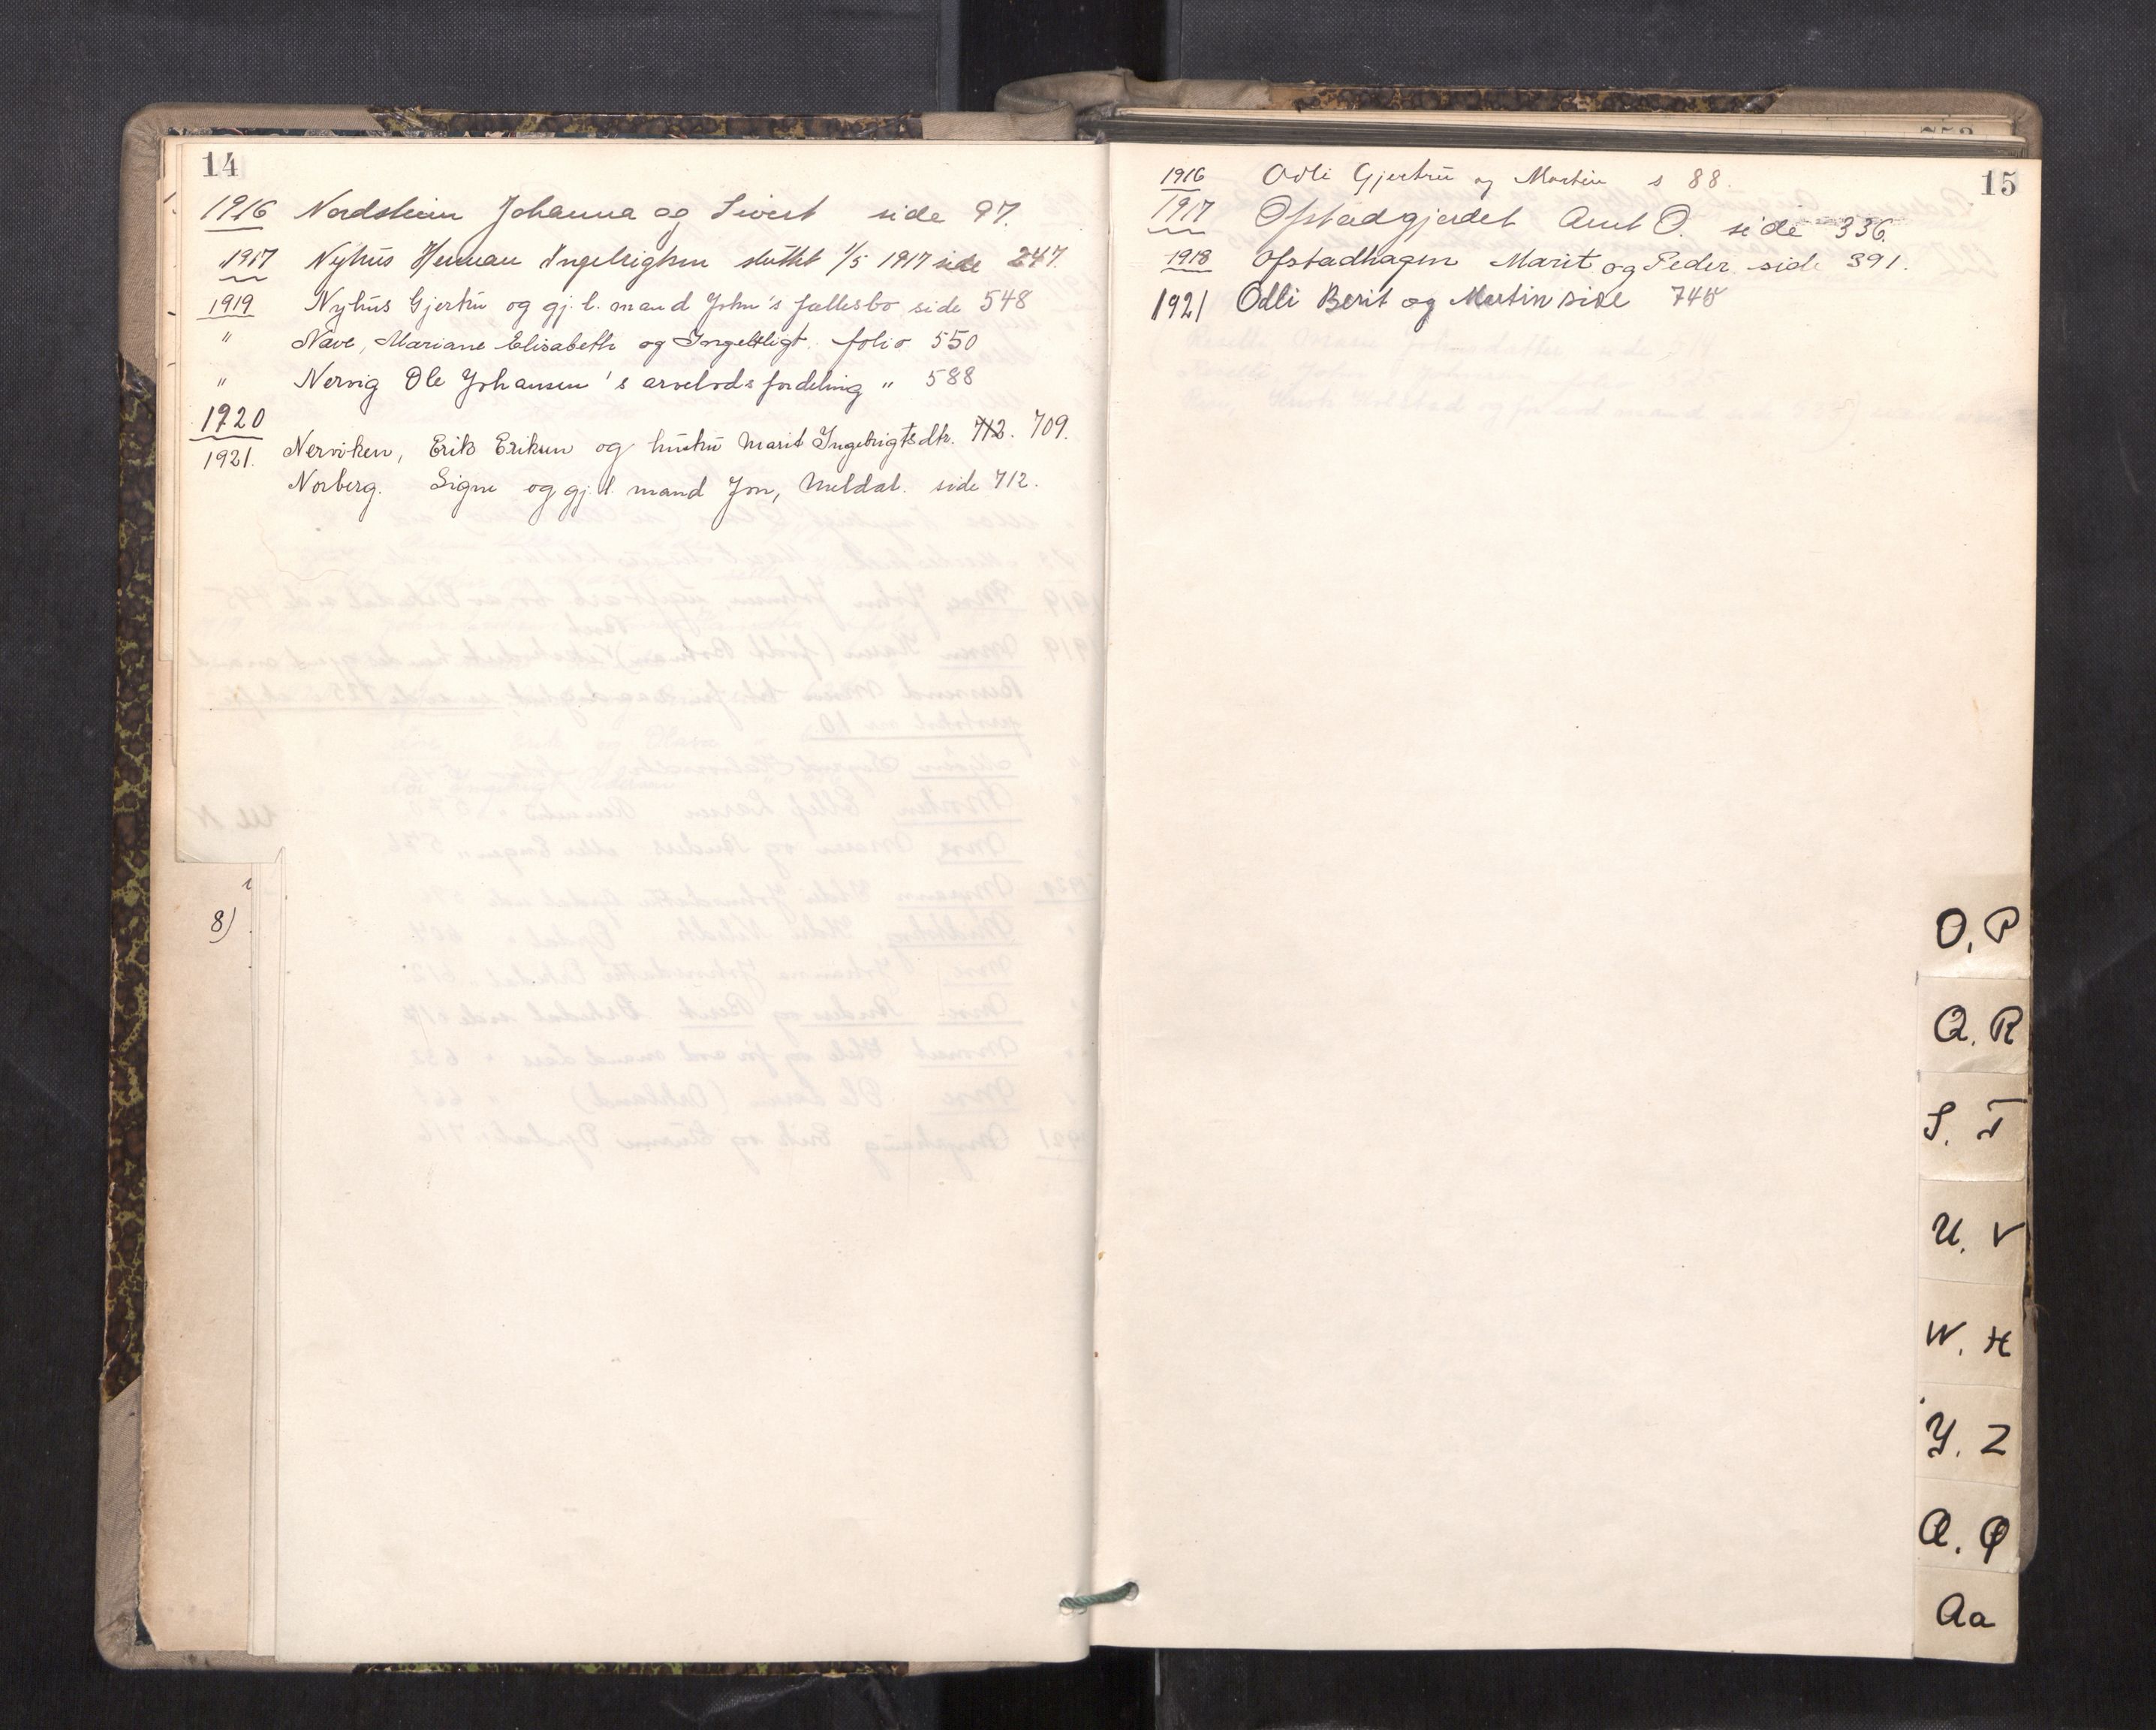 14
1916 Nordsheim Johanna og Sivert side 97.
1917 Nyhus Herman Ingebrigtsen sluttet 1/5 1917 side 247.
1919 Nyhus Gjertrú og gj. l. mand John's fællesbo side 548
" Nave, Mariane Elisabeth og Ingebrigt. folio 550
" Nervig Ole Johansen's arvelodsfordeling " 588
1920
Nerviken, Erik Eriksen og hústrú Marit Ingebrigtsdtr. 712. 709.
1921.
Norberg. Signe og gj. l. mand Jon, Meldal. side 712.
8)
15
1916 Odli Gjertrú og Martin s 88.
1917 Ofstadgjerdet Arnt O. side 336.
1918 Ofstadhagen Marit og Peder side 391.
1921 Odli Berit og Martin side 745
O, P
Q. R
S. T
U. V
W. X
Y. Z
Æ. Ø
Aa